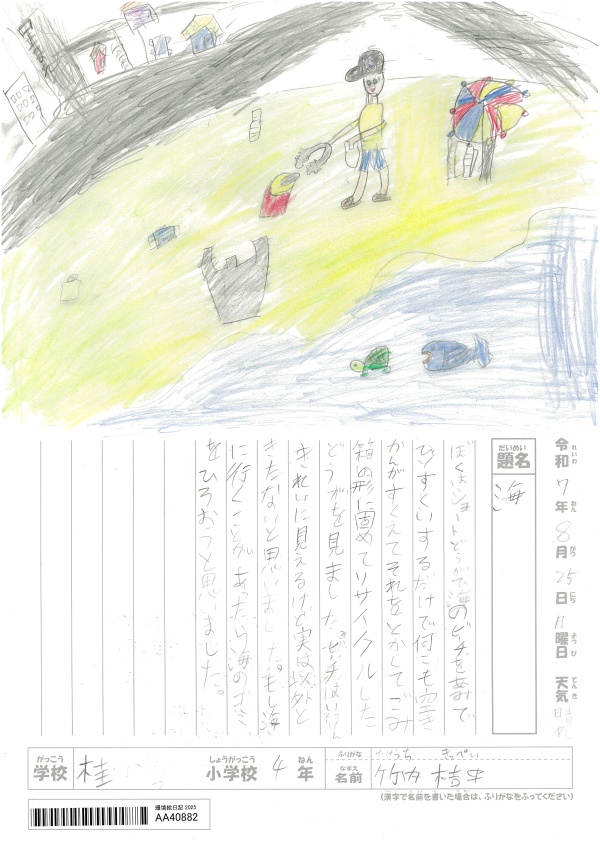 令和7年8月25日 月曜日 天気 晴れ
れいわ ねん がつ にち ようび てんき
題名
だいめい
海
ぼくはショートどうがで海のビーチをあみで
ひとすくいするだけで何こも空き
かんがすくえてそれをとかしてごみ
箱の形に固めてリサイクルした
どうがを見ました。ビーチはいっけん
きれいに見えるけど実は以外と
きたないと思いました。もし海
に行くことがあったら海のゴミ
をひろおうと思いました。
学校 桂 小学校 4年
がっこう しょうがっこう ねん
ふりがな たけうち きっぺい
名前 竹内 桔平
なまえ
(漢字で名前を書いた場合は、ふりがなをふってください)
環境絵日記 2025
AA40882